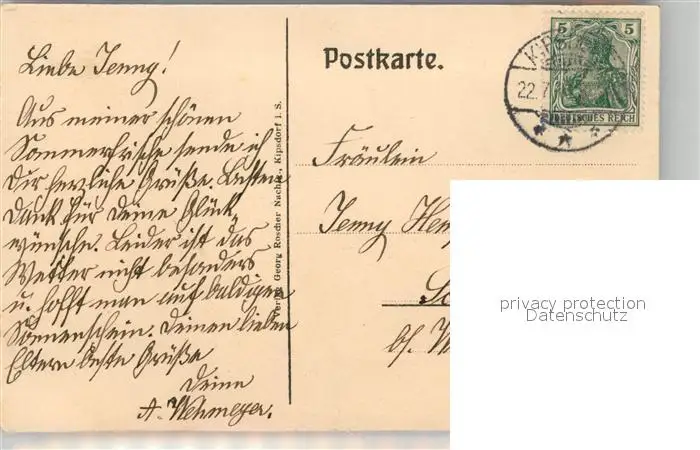 Liebe Jenny!
Aus meiner schönen
Sommerfrische sende ich
Dir herzliche Grüße. Besten
Dank für deine Glück-
wünsche. Leider ist das
Wetter nicht besonders
u. hofft man auf baldigen
Sonnenschein. Deinen lieben
Eltern beste Grüße
Deine
A. Wehmeyer.
Verlag Georg Roscher Nachf., Kipsdorf i. S.
Postkarte.
5 5
DEUTSCHES REICH
22.7
Fräulein
Jenny
privacy protection
Datenschutz